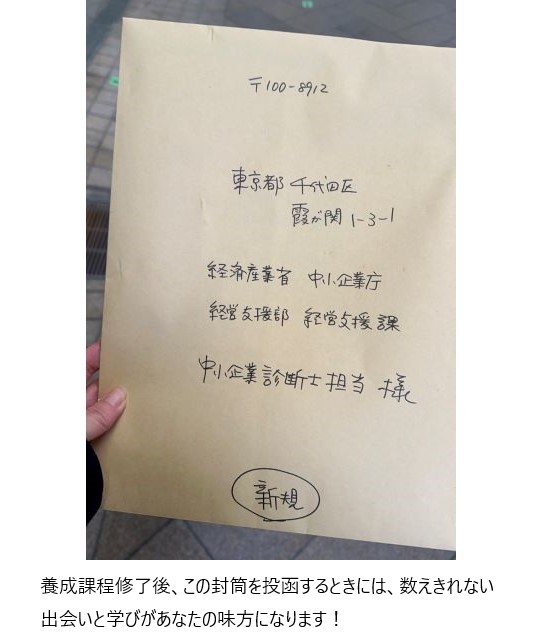 〒100-8912
東京都 千代田区
霞が関 1-3-1
経済産業省 中小企業庁
経営支援部 経営支援課
中小企業診断士担当 様
新規
養成課程修了後、この封筒を投函するときには、数えきれない
出会いと学びがあなたの味方になります！